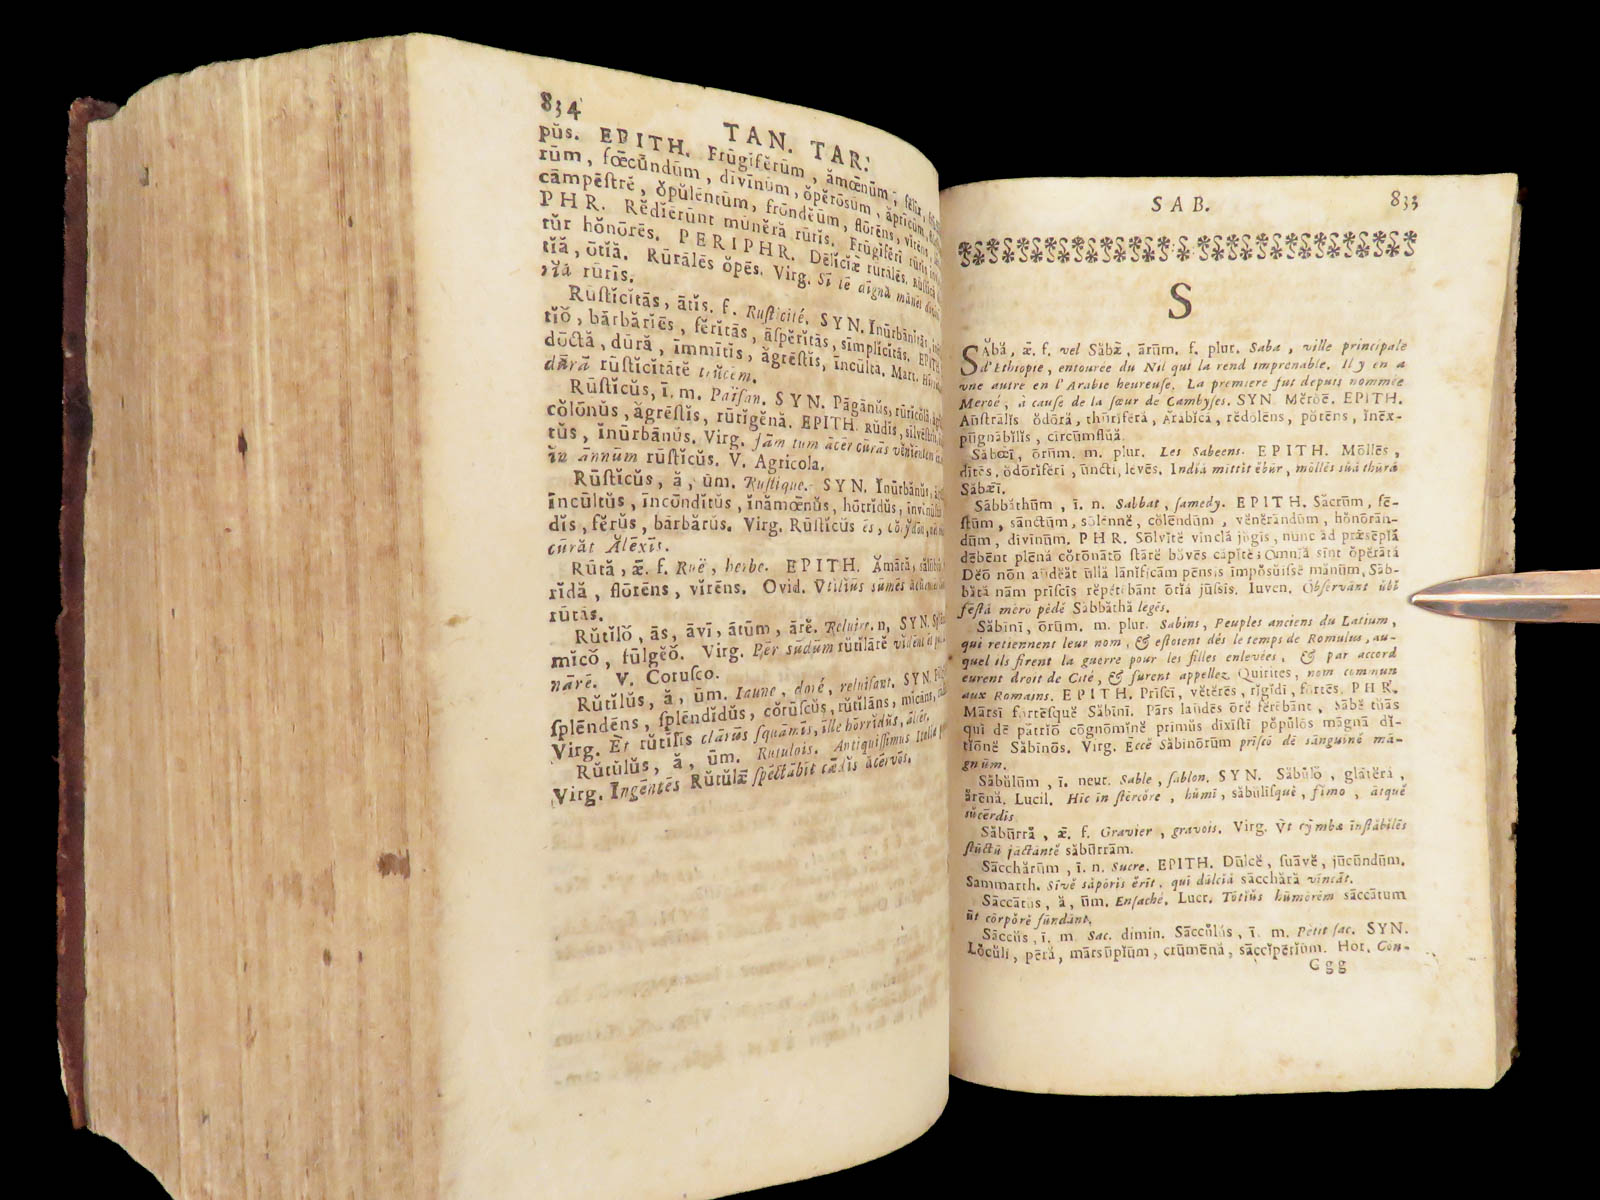 834
TAN. TAR.
pŭs. EPITH. Frūgĭfĕrūm, ămœ̄nūm,
rūm, fœ̄cūndūm, dīvīnūm, ŏpĕrōsūm, ăprīcūm,
cāmpēstrĕ, ŏpŭlēntūm, frōndĕūm, flōrēns, vĭrēns,
PHR. Rĕdĭērūnt mūnĕră rūrĭs. Frūgĭfĕrī rūrĭs
tŭr hŏnōrēs. PERIPHR. Dēlĭcĭǣ rūrālēs. Rūstĭcă
tĭă, ōtĭă. Rūrālēs ŏpēs. Virg. Sī tē dīgnă mănēt
rūrĭs.
Rūſtĭcĭtās, ātĭs. f. Ruſticité. SYN. Inūrbānĭtās,
tĭŏ, bārbărĭēs, fĕrĭtās, āſpĕrĭtās, sīmplĭcĭtās. EPITH.
dōctă, dūră, īmmītĭs, ăgrēſtĭs, īncūltă. Mart.
dūrā rūſtĭcĭtātĕ trŭcēm.
Rūſtĭcŭs, ī. m. Paiſan. SYN. Pāgānŭs, rūrĭcŏlă,
cŏlōnŭs, ăgrēſtĭs, rūrĭgĕnă. EPITH. Rŭdĭs, sīlvēſtrĭs,
tŭs, ĭnūrbānŭs. Virg. Jām tum ācēr cūrās vĕnĭēntem
īn ānnūm rūſtĭcŭs. V. Agricola.
Rūſtĭcŭs, ă, ūm. Ruſtique. SYN. Inūrbānŭs,
īncūltŭs, īncōndĭtŭs, ĭnămœ̄nŭs, hōrrĭdŭs,
dĭs, fĕrŭs, bārbărŭs. Virg. Rūſtĭcŭs ĕs, Cŏrўdōn,
cūrăt Ălēxĭs.
Rūtă, ǣ. f. Ruë, herbe. EPITH. Ămāră,
rĭdă, flōrēns, vĭrēns. Ovid. Vtĭlĭŭs sūmēs
rūtās.
Rŭtĭlŏ, ās, āvī, ātūm, ārĕ. Reluire. n, SYN.
mĭcŏ, fūlgĕŏ. Virg. Pēr sŭdum rŭtĭlārĕ vĭdēnt
nārĕ. V. Coruſco.
Rŭtĭlŭs, ă, ūm. Iaune, doré, reluiſant. SYN.
ſplēndēns, ſplēndĭdŭs, cŏrūſcŭs, rŭtĭlāns, mĭcāns,
Virg. Et rŭtĭlīs clārŭs ſquamīs, ĭlle hōrrĭdŭs, āltĕr.
Rŭtŭlŭs, ă, ūm. Rutulois. Antiquiſſimus Italiæ
Virg. Ingēntēs Rŭtŭlǣ ſpēctābĭt cǣdĭs ăcērvōs.
SAB.
833
S
SĂbă, ǣ. f. vel Săbǣ, ārūm. f. plur. Saba, ville principale
d'Ethiopie, entourée du Nil qui la rend imprenable. Il y en a
vne autre en l'Arabie heureuſe. La premiere fut depuis nommée
Meroé, à cauſe de la ſœur de Cambyſes. SYN. Mĕrŏē. EPITH.
Aūſtrālĭs ŏdōră, thūrĭfĕră, Arăbĭcă, rĕdŏlēns, pŏtēns, ĭnēx-
pūgnābĭlĭs, cīrcūmflŭă.
Săbœ̄ī, ōrūm. m. plur. Les Sabeens. EPITH. Mōllēs,
dītēs, ŏdōrĭfĕrī, ūncti, levēs. Indĭă mīttĭt ĕbŭr, mōllēs sŭă thūră
Săbǣī.
Sābbăthūm, ī. n. Sabbat, ſamedy. EPITH. Săcrūm, fē-
ſtūm, sānctūm, sōlēnnĕ, cŏlēndūm, vĕnĕrāndūm, hŏnōrān-
dūm, dīvīnūm. PHR. Sōlvĭtĕ vīnclă jŭgīs, nunc ad præſēpĭă
dēbēnt plēnă cŏrōnātō ſtārĕ bŏvēs căpĭtĕ; Omnĭă sīnt ŏpĕrātă
Dĕō nōn aūdĕăt ūllă lānĭfĭcām pēnſīs ĭmpŏſŭīſſĕ mănūm, Sāb-
bătă nām prīſcĭs rĕpĕtēbānt ōtĭă jūſſĭs. Iuven. Obſervānt ŭbĭ
fēſtă mĕrō pĕdĕ Sābbăthă lēgēs.
Săbīnī, ōrūm. m. plur. Sabins, Peuples anciens du Latium,
qui retiennent leur nom, & eſtoient dés le temps de Romulus, au-
quel ils firent la guerre pour les filles enlevées, & par accord
eurent droit de Cité, & furent appellez Quirites, nom commun
aux Romains. EPITH. Prīſcī, vĕtĕrēs, rĭgĭdī, fōrtēs. PHR.
Mārsī fōrtēſquĕ Săbīnī. Pārs laūdēs ōrĕ fĕrēbānt, Săbĕ tŭās
qui dē pătrĭō cōgnōmĭnĕ prīmŭs dīxĭſtī pŏpŭlōs māgnā dĭ-
tĭōnĕ Săbīnōs. Virg. Eccĕ Săbīnōrūm prīſcō dē sānguĭnĕ mā-
gnūm.
Săbŭlūm, ī. neut. Sable, ſablon. SYN. Săbŭlŏ, glārĕă,
ărēnă. Lucil. Hīc in ſtērcŏrĕ, hŭmī, săbŭlīſquĕ, fĭmo, ātquĕ
sŭcērdĭs
Săbūrră, ǣ. f. Gravier, gravois. Virg. Vt cȳmbæ īnſtăbĭlēs
flūctū jāctāntĕ săbūrrām.
Sācchărūm, ī. n. Sucre. EPITH. Dūlcĕ, ſuāvĕ, jūcūndūm.
Sammarth. Sīvĕ săpōrĭs ĕrĭt, qui dūlcĭă sācchără vīncăt.
Sāccātŭs, ă, ūm. Enſaché. Lucr. Tōtĭŭs hūmōrēm sāccātum
ŭt cōrpŏrĕ fūndānt.
Sāccŭs, ī. m. Sac. dimin. Sāccŭlŭs, ī. m. Petit ſac. SYN.
Lŏcŭli, pēră, mārsūpĭūm, crŭmēnă, sāccĭpērĭūm. Hor. Con-
Ggg